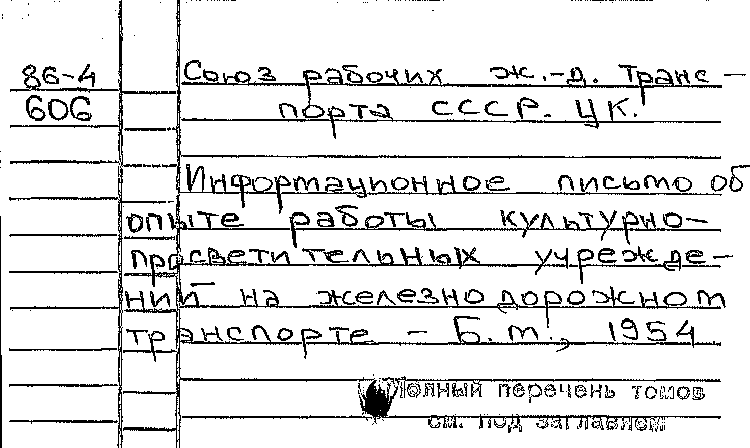 86-4 Союз рабочих ж.-д. транс-
606 порта СССР. ЦК.
Информационное письмо об
опыте работы культурно-
просветительных учрежде-
ний на железнодорожном
транспорте - Б.м., 1954
Полный перечень томов
см. под заглавием